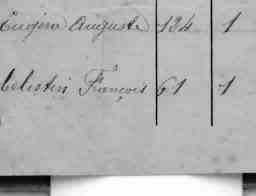 Eugène Auguste 124 1
Célestin François 61 1